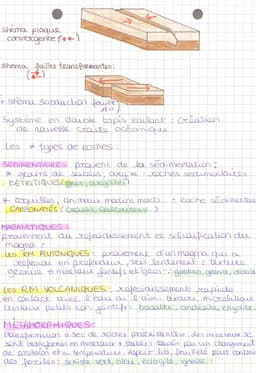 shéma plaque
convergente (→←)
shéma failles transformantes:
+ shéma subduction (feuille)
Système en double tapis roulant : création
de nouvelle croûte océanique.
Les ≠ types de roches :
SÉDIMENTAIRES provient de la sédimentation :
* grains de sables, argile = roches sédimentaires
DÉTRITIQUES (grès, argilites)
* coquilles, animaux marins morts = roche sédimentaire
CARBONATÉS (craies, calcaires)
MAGMATIQUES :
proviennent du refroidissement et solidification du
magma :
Les RM PLUTONIQUES : proviennent d'un magma qui a
refroidi en profondeur, très lentement : texture
grenue = minéraux jointifs et gros. gabbro, granite, diorite
Les RM VOLCANIQUES : refroidissement rapide
en contact avec l'eau ou l'air. texture microlithique
minéraux petits non jointifs. basalte, andésite, rhyolite
MÉTAMORPHIQUES :
transformation à sec de roches préexistantes. des minéraux se
sont transformés en minéraux + stables causés par un changement
de pression et/ou température. Aspect lité, feuilleté peut contenir
des fossiles : schiste vert, bleu, éclogite, gneiss.